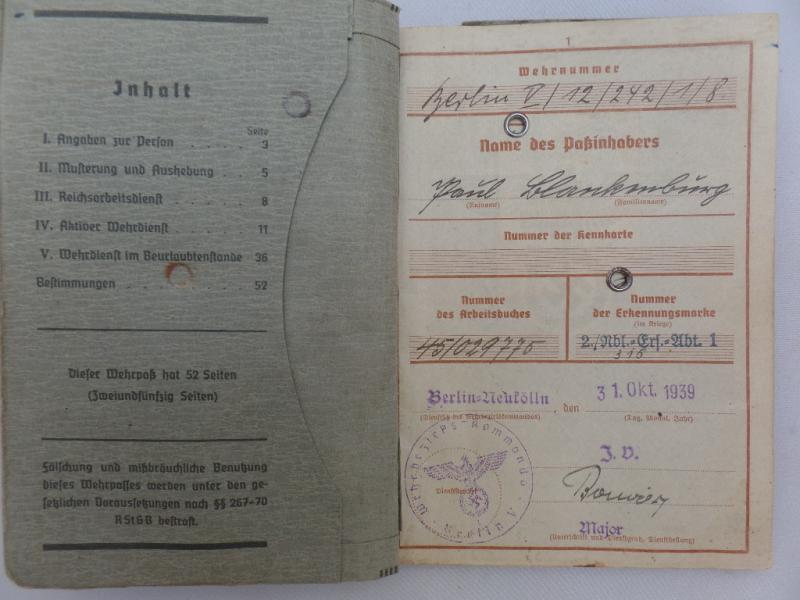 Inhalt
Seite
I. Angaben zur Person . . . . 3
II. Musterung und Aushebung . . 5
III. Reichsarbeitsdienst . . . . 8
IV. Aktiver Wehrdienst . . . . 11
V. Wehrdienst im Beurlaubtenstande 36
Bestimmungen . . . . . . 52
Dieser Wehrpaß hat 52 Seiten
(Zweiundfünfzig Seiten)
Fälschung und mißbräuchliche Benutzung
dieses Wehrpasses werden unter den ge-
setzlichen Voraussetzungen nach §§ 267-70
RStGB bestraft.
1
Wehrnummer
Berlin V/12/242/1/8
Name des Paßinhabers
Paul Blankenburg
(Rufname) (Familienname)
Nummer der Kennkarte
Nummer
des Arbeitsbuches
45/029775
Nummer
der Erkennungsmarke
(im Kriege)
2./Nbl.-Ers.-Abt. 1
315
Berlin-Neukölln den 31. Okt. 1939
(Dienstsitz des Wehrbezirkskommandos) (Tag, Monat, Jahr)
Wehrbezirks-Kommando
Berlin V
Dienststempel
J. V.
Major
(Unterschrift und Dienstgrad, Dienststellung)